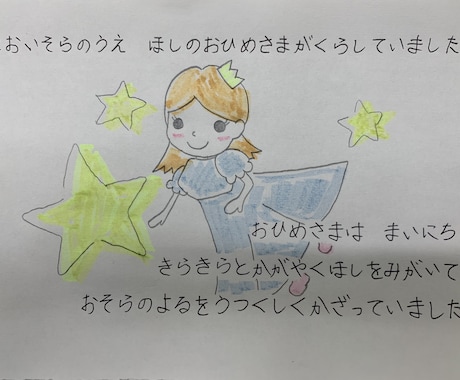 おいそらのうえ　ほしのおひめさまがくらしていました
おひめさまは　まいにち
きらきらとかがやくほしをみがいて
おそらのよるをうつくしくかざっていました